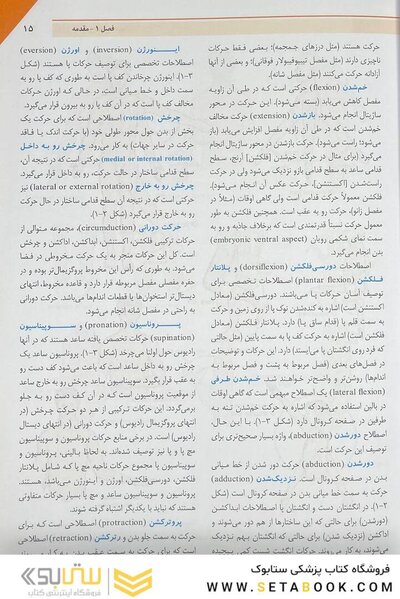 فصل ۱ - مقدمه ۱۵
حرکت هستند (مثل درزهای جمجمه)؛ بعضی فقط حرکات
ناچیزی دارند (مثل مفصل تیبیوفیبولار فوقانی)؛ و بعضی از آنها
آزادانه حرکت می‌کنند (مثل مفصل شانه).
خم‌شدن (flexion) حرکتی است که در طی آن زاویه
مفصل کاهش می‌یابد (بسته می‌شود). این حرکت در محور
ساژیتال انجام می‌شود. بازشدن (extension) حرکت مخالف
خم‌شدن است که در طی آن زاویه مفصل افزایش می‌یابد (باز
می‌شود)؛ راست می‌شود). حرکت بازشدن در محور ساژیتال انجام
می‌گیرد (برای مثال در حرکت خم‌شدن [فلکشن] آرنج، سطح
قدامی ساعد به سطح قدامی بازو نزدیک می‌شود ولی در حرکت
راست‌شدن [اکستنشن]، حرکت عکس آن انجام می‌شود).
فلکشن معمولاً حرکت قدامی است ولی گاهی اوقات (مثلاً در
مفصل زانو)، حرکت رو به عقب است. همچنین فلکشن به طور
معمول حرکت نسبتاً قدرتمندی است که برخلاف جاذبه و رو به
سمت نمای شکمی رویان (embryonic ventral aspect)
بدن انجام می‌گیرد.
اصطلاحات دورسی‌فلکشن (dorsiflexion) و پلانتار
فلکشن (plantar flexion) اصطلاحات تخصصی برای
توصیف آسان حرکات پا می‌باشند. دورسی‌فلکشن (معادل
اکستنشن است) اشاره به کنده‌شدن نوک پا از روی زمین و حرکت
به سمت قلم پا (قدام ساق پا) دارد. پلانتار فلکشن (معادل
فلکشن است) اشاره به حرکت کف پا به سمت پایین (مثل حالتی
که فرد روی انگشتان پا می‌ایستد) دارد. این حرکات و توضیحات
در فصل‌های بعدی (فصل مربوط به پشت و فصل مربوط به
اندام‌ها) روشن‌تر و واضح‌تر خواهند شد. خم‌شدن طرفی
(lateral flexion) یک اصطلاح مبهمی است که گاهی اوقات
در بالین استفاده می‌شود که اشاره به حرکت خم‌شدن تنه به
طرفین در صفحه کرونال دارد (شکل ۳-۱). با این حال،
اصطلاح دورشدن (abduction)، واژه بسیار صحیح‌تری برای
توصیف این حرکت است.
دورشدن (abduction) حرکت دور شدن از خط میانی
بدن در صفحه کرونال است. نزدیک‌شدن (adduction)
حرکت به سمت خط میانی بدن در صفحه کرونال است (شکل
۳-۱). در انگشتان دست و انگشتان پا اصطلاحات ابداکشن
(دورشدن) برای حالتی که این ساختارها از هم دور می‌شوند و
اداکشن (نزدیک شدن) برای حالتی که انگشتان به هم نزدیک
می‌شوند، به کار می‌روند. حرکات انگشت شست کمی پیچیده
اینورژن (inversion) و اورژن (eversion)
اصطلاحات تخصصی برای توصیف حرکات پا هستند (شکل
۳-۱). اینورژن چرخاندن کف پا است به طوری که کف پا رو به
سمت داخل و خط میانی است، در حالی که اورژن حرکات
مخالف کف پا است که در آن کف پا رو به بیرون قرار می‌گیرد.
چرخش (rotation) اصطلاحی است که برای حرکت یک
بخش از بدن حول محور طولی خود (با حرکت اندک یا فاقد
حرکت در سایر جهات) به کار می‌رود. چرخش رو به داخل
(medial or internal rotation) حرکتی است که در نتیجه آن،
سطح قدامی ساختار در حالت حرکت، رو به داخل قرار می‌گیرد.
چرخش رو به خارج (lateral or external rotation) نیز
حرکتی است که در نتیجه آن سطح قدامی ساختار در حال حرکت
رو به خارج قرار می‌گیرد (شکل ۲-۱).
حرکت دورانی (circumduction)، مجموعه متوالی از
حرکات ترکیبی فلکشن، اکستنشن، ابداکشن، اداکشن و چرخش
است. کل این حرکات منجر به یک حرکت مخروطی در فضا
می‌شود، به طوری که رأس این مخروط پروگزیمال‌تر بوده و در
حفره مفصلی مفصل مربوطه قرار دارد و قاعده مخروط، انتهای
دیستال‌تر استخوان‌ها یا قطعات اندام‌ها می‌باشد. حرکت دورانی
به راحتی در مفصل شانه انجام می‌شود.
پروناسیون (pronation) و سوپیناسیون
(supination) حرکات تخصص یافته ساعد هستند که در آنها
رادیوس حول اولنا می‌چرخد (شکل ۳-۱). پروناسیون ساعد یک
چرخش رو به داخل ساعد است که باعث می‌شود کف دست رو
به عقب قرار بگیرد. سوپیناسیون چرخش رو به خارج ساعد
از موقعیت پروناسیون است که در آن کف دست رو به جلو
برمی‌گردد. این حرکات ترکیبی از هر دو حرکت چرخش (در
انتهای پروگزیمال رادیوس) و حرکت دورانی (در انتهای دیستال
رادیوس) است. در برخی منابع حرکات پروناسیون و سوپیناسیون
مچ پا و پا نیز توصیف شده‌اند. به لحاظ بالینی، پروناسیون و
سوپیناسیون پا مجموع حرکات ناحیه مچ پا که شامل پلانتار
فلکشن، دورسی‌فلکشن، اورژن و اینورژن می‌باشد، هستند.
پروناسیون و سوپیناسیون ساعد و مچ پا بسیار حرکات متفاوتی
هستند که نباید با یکدیگر اشتباه گرفته شوند.
پروترکشن (protraction) اصطلاحی است که برای
حرکت به سمت جلو بدن و رترکشن (retraction) اصطلاحی
است که برای حرکت به سمت عقب بدن به کار می‌روند
فروشگاه کتاب پزشکی ستابوک
WWW.SETABOOK.COM
ستابوک
فروشگاه اینترنتی کتاب